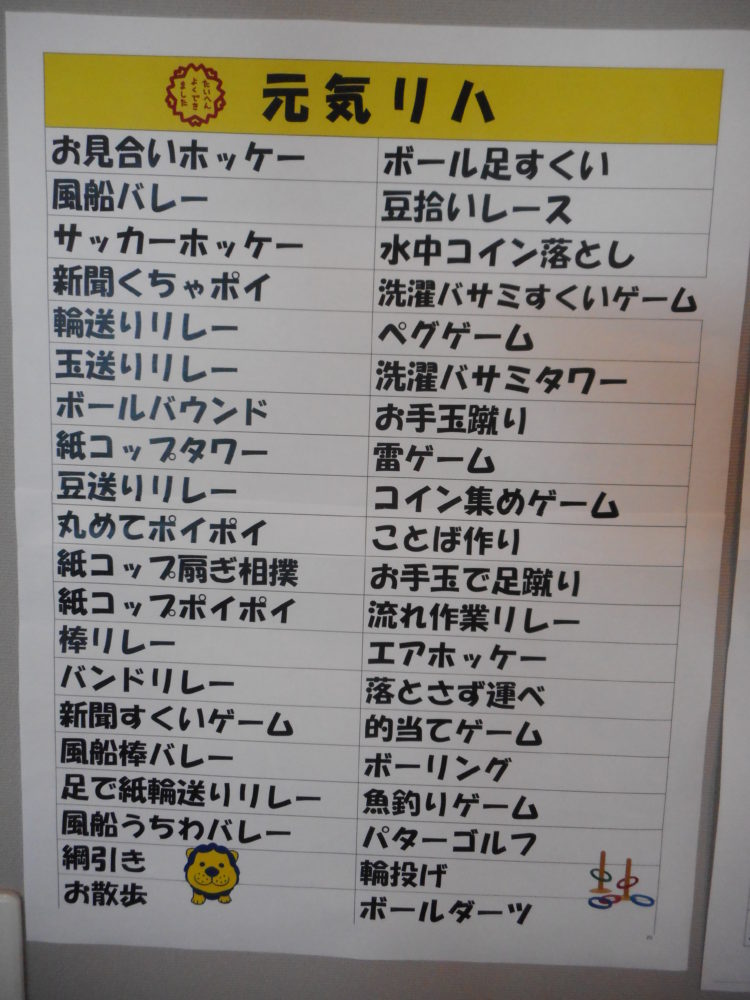 たいへん
よくでき
ました
元気リハ
お見合いホッケー
風船バレー
サッカーホッケー
新聞くちゃポイ
輪送りリレー
玉送りリレー
ボールバウンド
紙コップタワー
豆送りリレー
丸めてポイポイ
紙コップ扇ぎ相撲
紙コップポイポイ
棒リレー
バンドリレー
新聞すくいゲーム
風船棒バレー
足で紙輪送りリレー
風船うちわバレー
綱引き
お散歩
ボール足すくい
豆拾いレース
水中コイン落とし
洗濯バサミすくいゲーム
ペグゲーム
洗濯バサミタワー
お手玉蹴り
雷ゲーム
コイン集めゲーム
ことば作り
お手玉で足蹴り
流れ作業リレー
エアホッケー
落とさず運べ
的当てゲーム
ボーリング
魚釣りゲーム
パターゴルフ
輪投げ
ボールダーツ